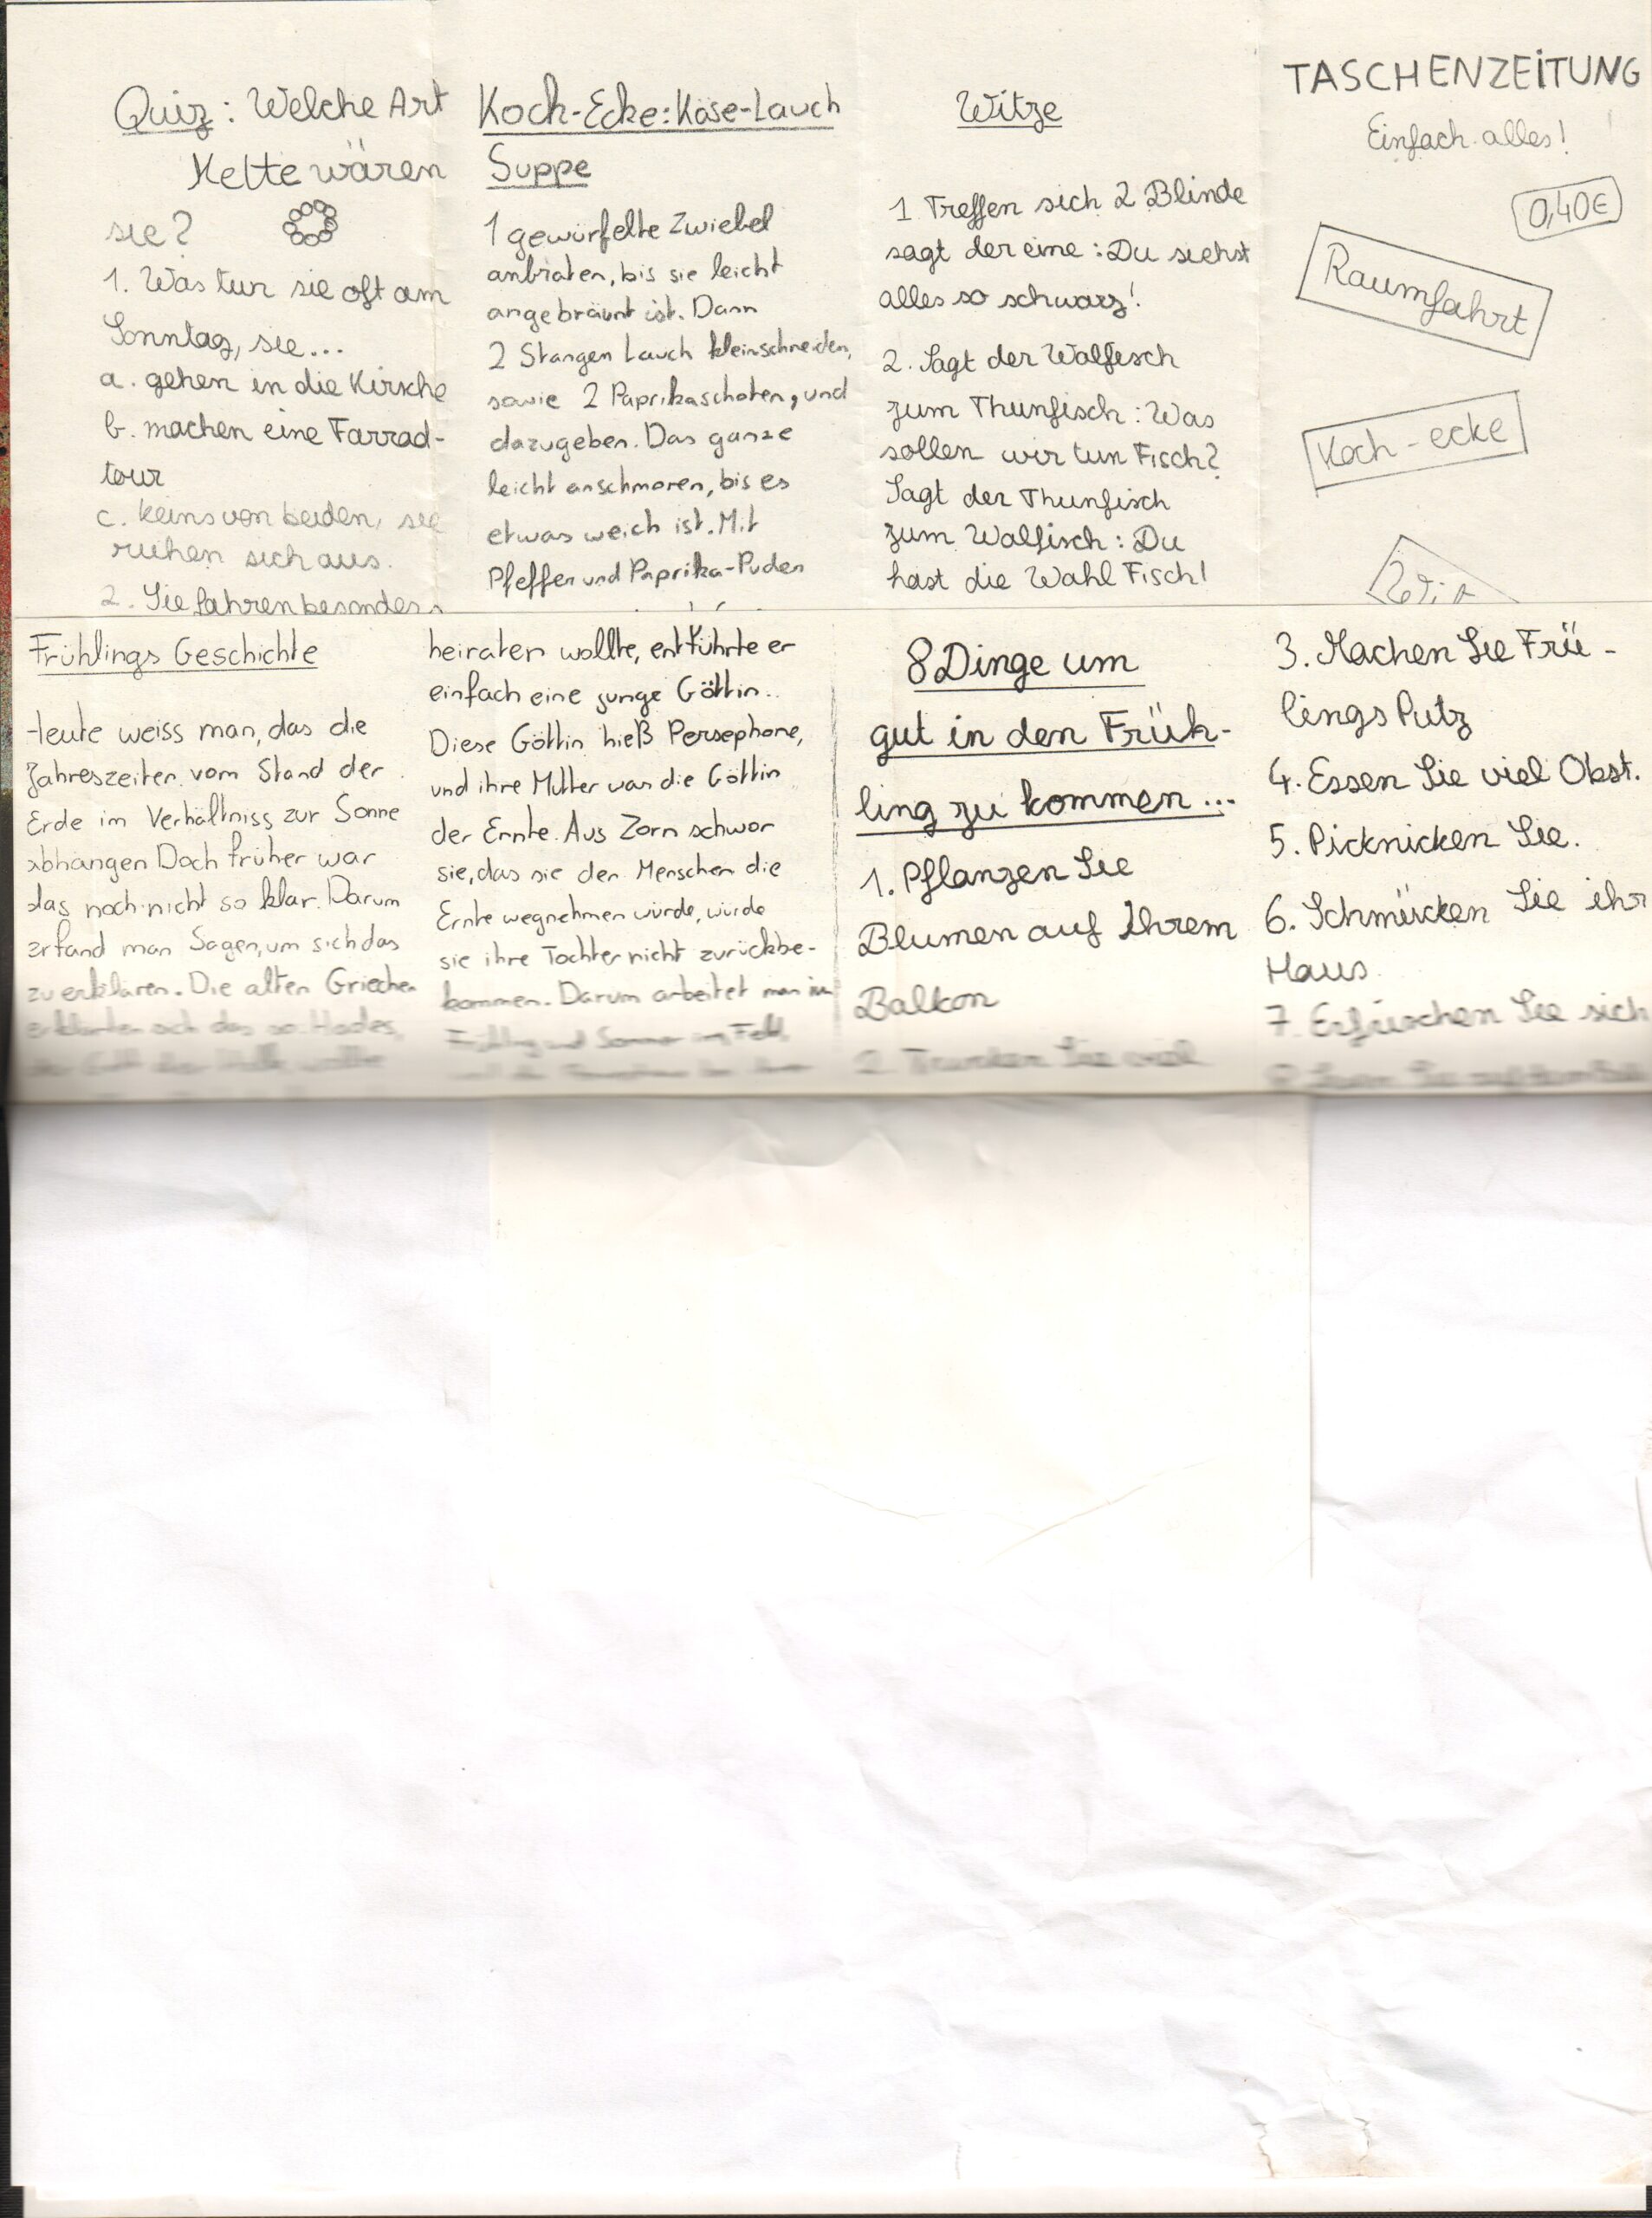 Quiz: Welche Art
Kette wären
sie?
1. Was tun sie oft am
Sonntag, sie...
a. gehen in die Kirsche
b. machen eine Farrad-
tour
c. keins von beiden, sie
ruhen sich aus.
2. Sie fahren besonders
Koch-Ecke: Käse-Lauch
Suppe
1 gewürfelte Zwiebel
anbraten, bis sie leicht
angebräunt ist. Dann
2 Stangen Lauch kleinschneiden,
sowie 2 Paprikaschoten, und
dazugeben. Das ganze
leicht anschmoren, bis es
etwas weich ist. Mit
Pfeffer und Paprika-Puder
Witze
1 Treffen sich 2 Blinde
sagt der eine: Du siehst
alles so schwarz!
2. Sagt der Walfisch
zum Thunfisch: Was
sollen wir tun Fisch?
Sagt der Thunfisch
zum Walfisch: Du
hast die Wahl Fisch!
TASCHENZEITUNG
Einfach alles!
0,40€
Raumfahrt
Koch-ecke
Frühlings Geschichte
Heute weiss man, das die
Jahreszeiten vom Stand der
Erde im Verhältniss zur Sonne
abhängen Doch früher war
das noch nicht so klar. Darum
erfand man Sagen, um sich das
zu erklären. Die alten Griechen
erklärten sich das so. Hades,
der Gott der Hölle, wollte
heiraten wollte, entführte er
einfach eine junge Göttin..
Diese Göttin hieß Persephone,
und ihre Mutter war die Göttin
der Ernte. Aus Zorn schwor
sie, das sie den Menschen die
Ernte wegnehmen würde, würde
sie ihre Tochter nicht zurückbe-
kommen. Darum arbeitet man im
Frühling und Sommer im Feld,
8 Dinge um
gut in den Früh-
ling zu kommen...
1. Pflanzen Sie
Blumen auf Ihrem
Balkon
2. Trinken Sie viel
3. Machen Sie Frü-
lings Putz
4. Essen Sie viel Obst.
5. Picknicken Sie.
6. Schmücken Sie ihr
Haus
7. Erfrischen Sie sich